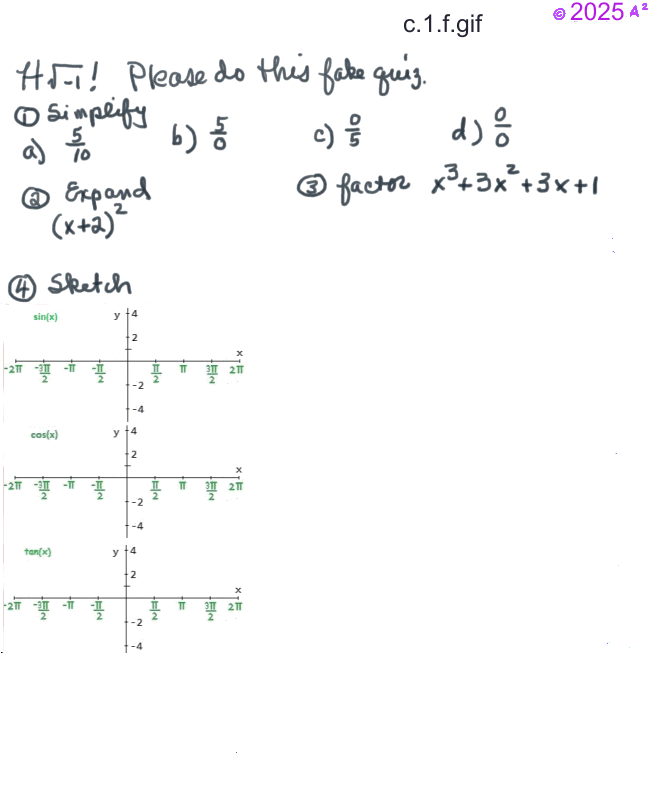 c.1.f.gif
© 2025 A²
H√-1! Please do this fake quiz.
① Simplify
a) 5/10 b) 5/0 c) 0/5 d) 0/0
② Expand ③ factor x³+3x²+3x+1
(x+2)²
④ Sketch
sin(x) y 4
2
x
-2π -3π/2 -π -π/2 π/2 π 3π/2 2π
-2
-4
cos(x) y 4
2
x
-2π -3π/2 -π -π/2 π/2 π 3π/2 2π
-2
-4
tan(x) y 4
2
x
-2π -3π/2 -π -π/2 π/2 π 3π/2 2π
-2
-4